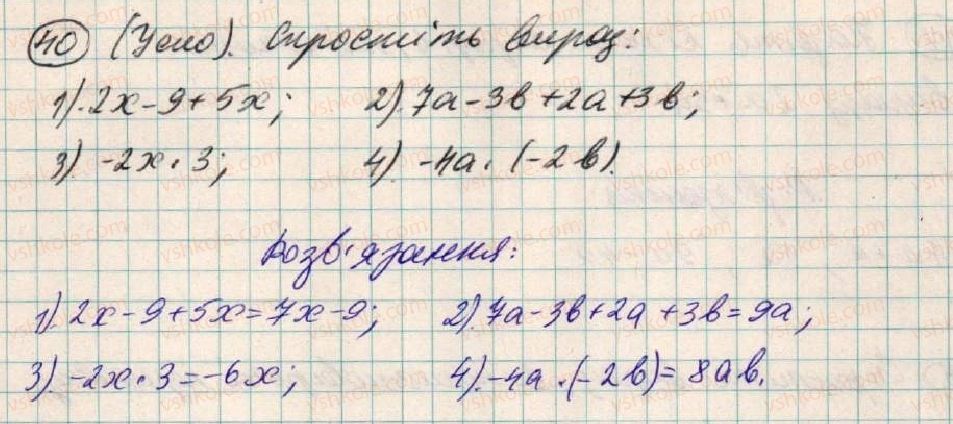 40 (Усно). Спростіть вираз:
1). 2x - 9 + 5x; 2). 7a - 3b + 2a + 3b;
3). -2x · 3; 4). -4a · (-2b).
Розв'язання:
1). 2x - 9 + 5x = 7x - 9; 2). 7a - 3b + 2a + 3b = 9a;
3). -2x · 3 = -6x; 4). -4a · (-2b) = 8ab.